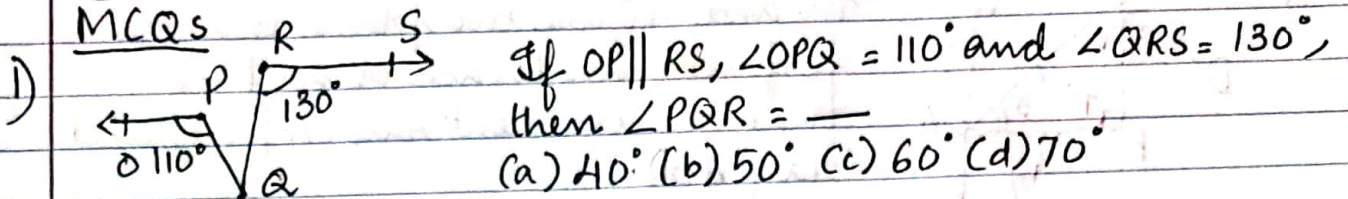 MCQs
1)
R S
P
130°
O 110°
Q
If OP|| RS, ∠OPQ = 110° and ∠QRS = 130°,
then ∠PQR = __
(a) 40° (b) 50° (c) 60° (d) 70°